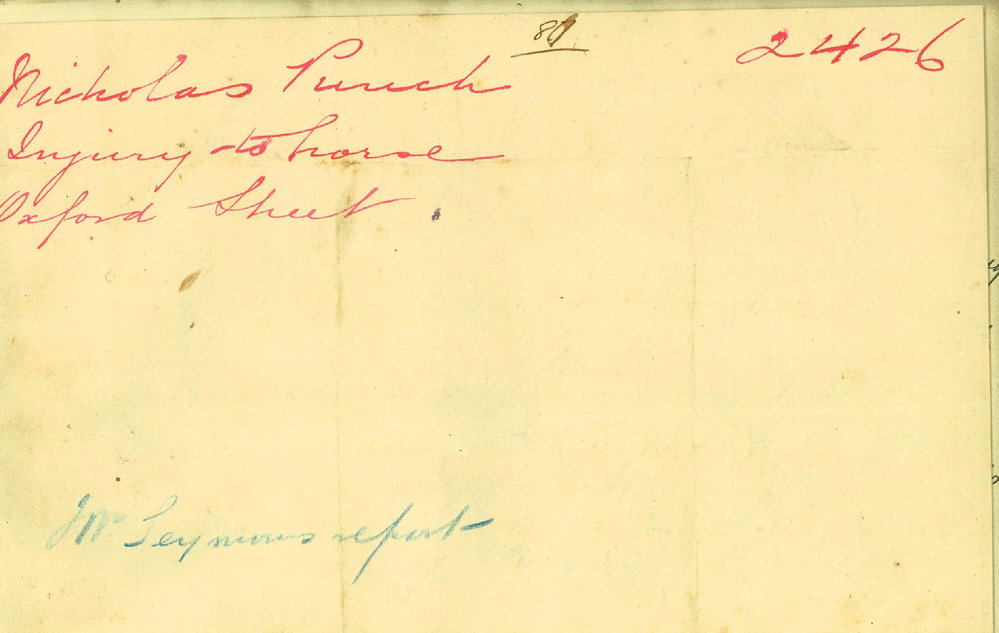 80
2426
Nicholas Punch
Injury to horse
Oxford Street.
Mr Seymours report